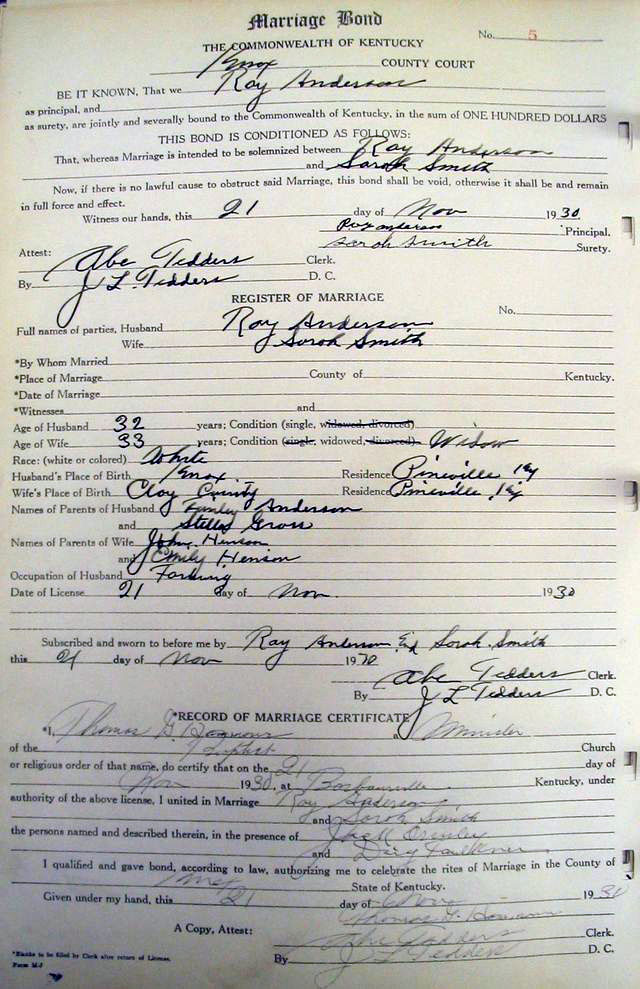 Marriage Bond
No. 5
THE COMMONWEALTH OF KENTUCKY
Knox COUNTY COURT
BE IT KNOWN, That we Roy Anderson
as principal, and
as surety, are jointly and severally bound to the Commonwealth of Kentucky, in the sum of ONE HUNDRED DOLLARS
THIS BOND IS CONDITIONED AS FOLLOWS:
That, whereas Marriage is intended to be solemnized between Roy Anderson
and Sarah Smith
Now, if there is no lawful cause to obstruct said Marriage, this bond shall be void, otherwise it shall be and remain
in full force and effect.
Witness our hands, this 21 day of Nov 1930
Roy anderson Principal.
sarah smith Surety.
Attest: Abe Tedders Clerk.
By J L. Tedders D. C.
REGISTER OF MARRIAGE
No.
Full names of parties, Husband Roy Anderson
Wife Sarah Smith
*By Whom Married
*Place of Marriage County of Kentucky.
*Date of Marriage
*Witnesses and
Age of Husband 32 years; Condition (single, widowed, divorced)
Age of Wife 33 years; Condition (single, widowed, divorced) Widow
Race: (white or colored) White
Husband's Place of Birth Knox Residence Pineville Ky
Wife's Place of Birth Clay County Residence Pineville, Ky
Names of Parents of Husband Anderson
and Stella Gross
Names of Parents of Wife John Henson
and Emily Henson
Occupation of Husband
Date of License 21 day of Nov. 1930
Subscribed and sworn to before me by Roy Anderson Sarah Smith
this 21 day of Nov 19
Abe Tedders Clerk.
By J L Tedders D. C.
*RECORD OF MARRIAGE CERTIFICATE
*I, Thomas a Minister
of the Church
or religious order of that name, do certify that on the 21 day of
Nov 1930, at Barbourville Kentucky, under
authority of the above license, I united in Marriage Roy Anderson
and Sarah Smith
the persons named and described therein, in the presence of
and Faulkner
I qualified and gave bond, according to law, authorizing me to celebrate the rites of Marriage in the County of
Knox State of Kentucky.
Given under my hand, this 21 day of Nov 1930
Thomas
A Copy, Attest: Abe Tedders Clerk.
By J L Tedders D. C.
*Blanks to be filled by Clerk after return of License.
Form M-J